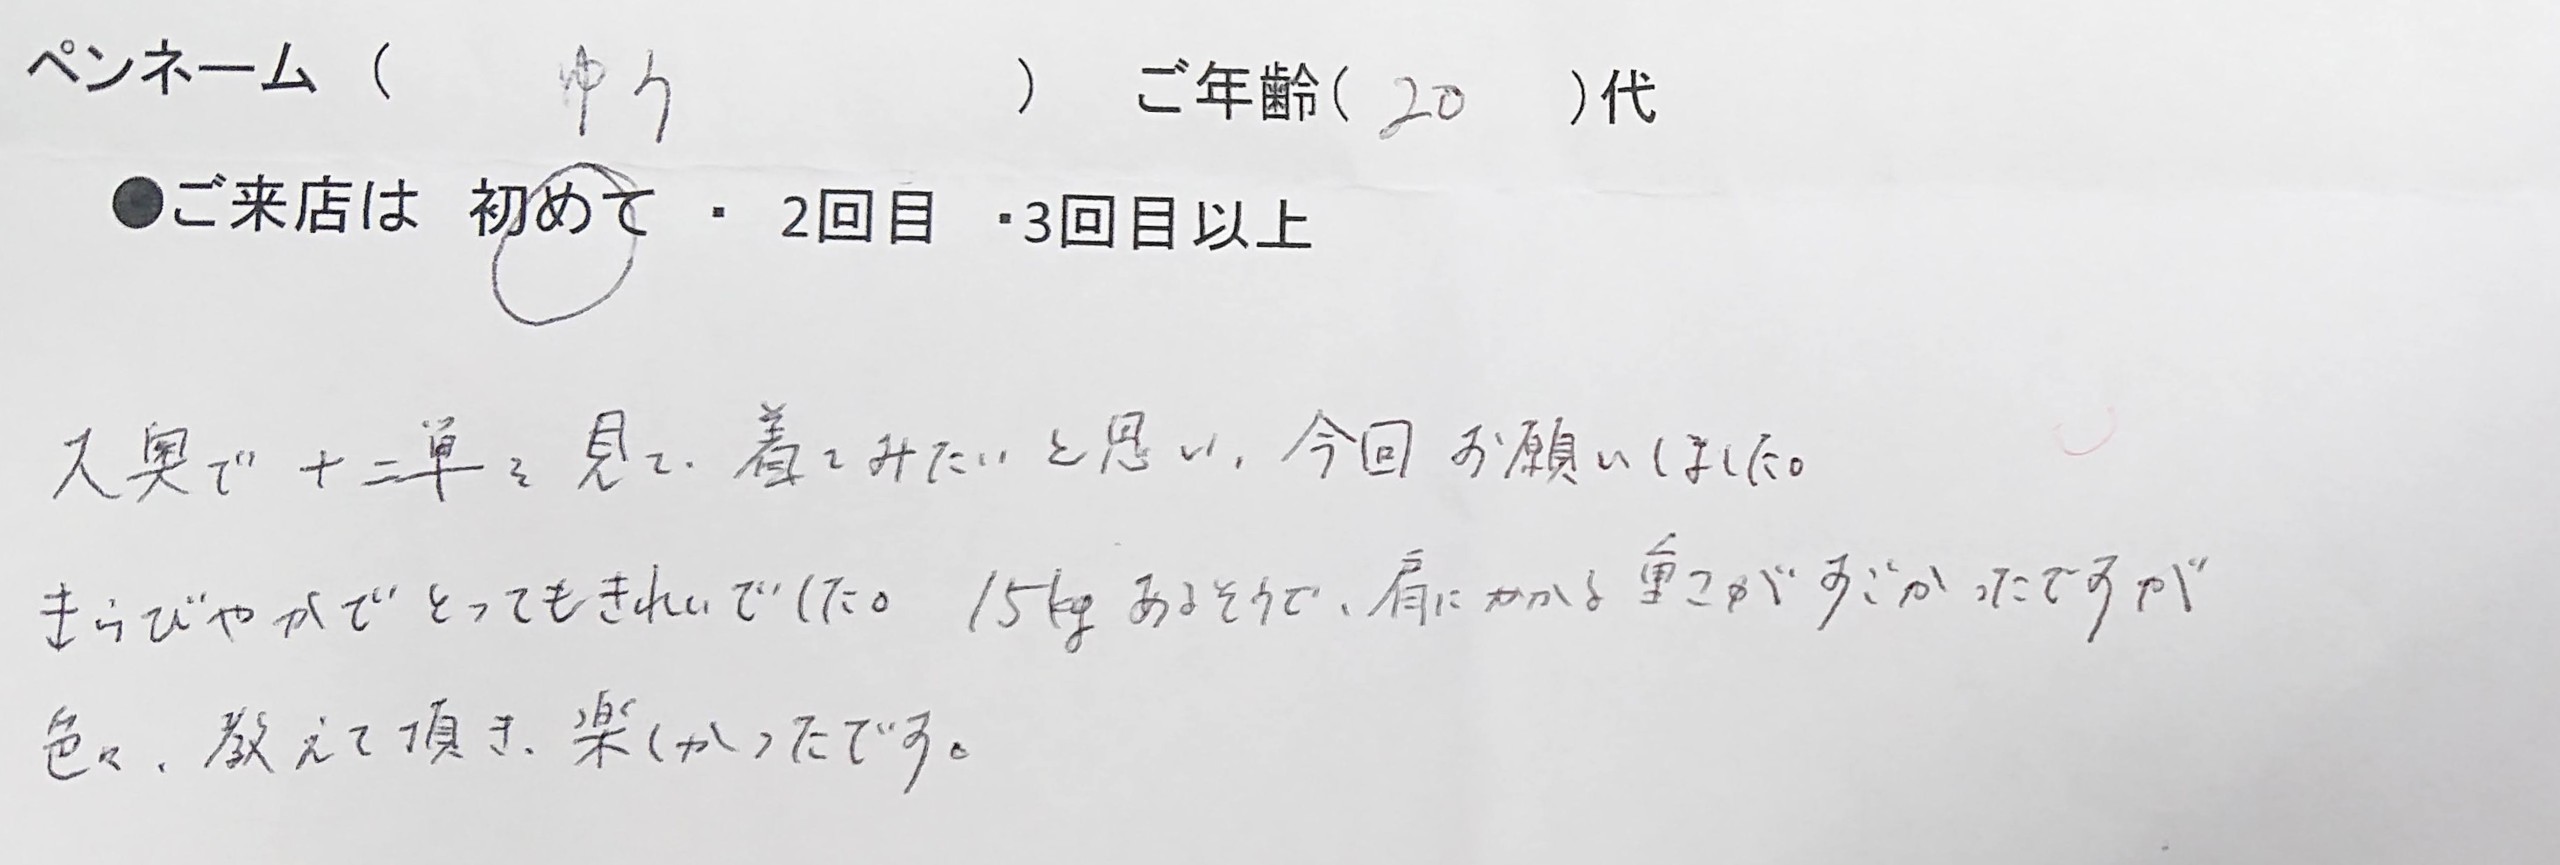 ペンネーム ( ゆう ) ご年齢( 20 )代
●ご来店は 初めて ・ 2回目 ・3回目以上
大奥で十二単を見て、着てみたいと思い、今回お願いしました。
きらびやかでとってもきれいでした。 15kgあるそうで、肩にかかる重さがすごかったですが
色々、教えて頂き、楽しかったです。